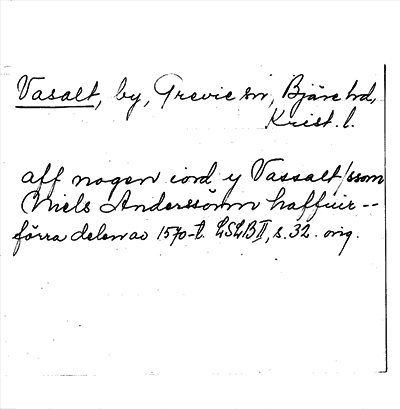 Vasalt, by, Grevie sn, Bjäre hd,
Krist. l.
aff nogen iord y Vassalt/ssom
Niels Anderssönn haffuir --
förra delen av 1570-t. LSLB II, s. 32. orig.